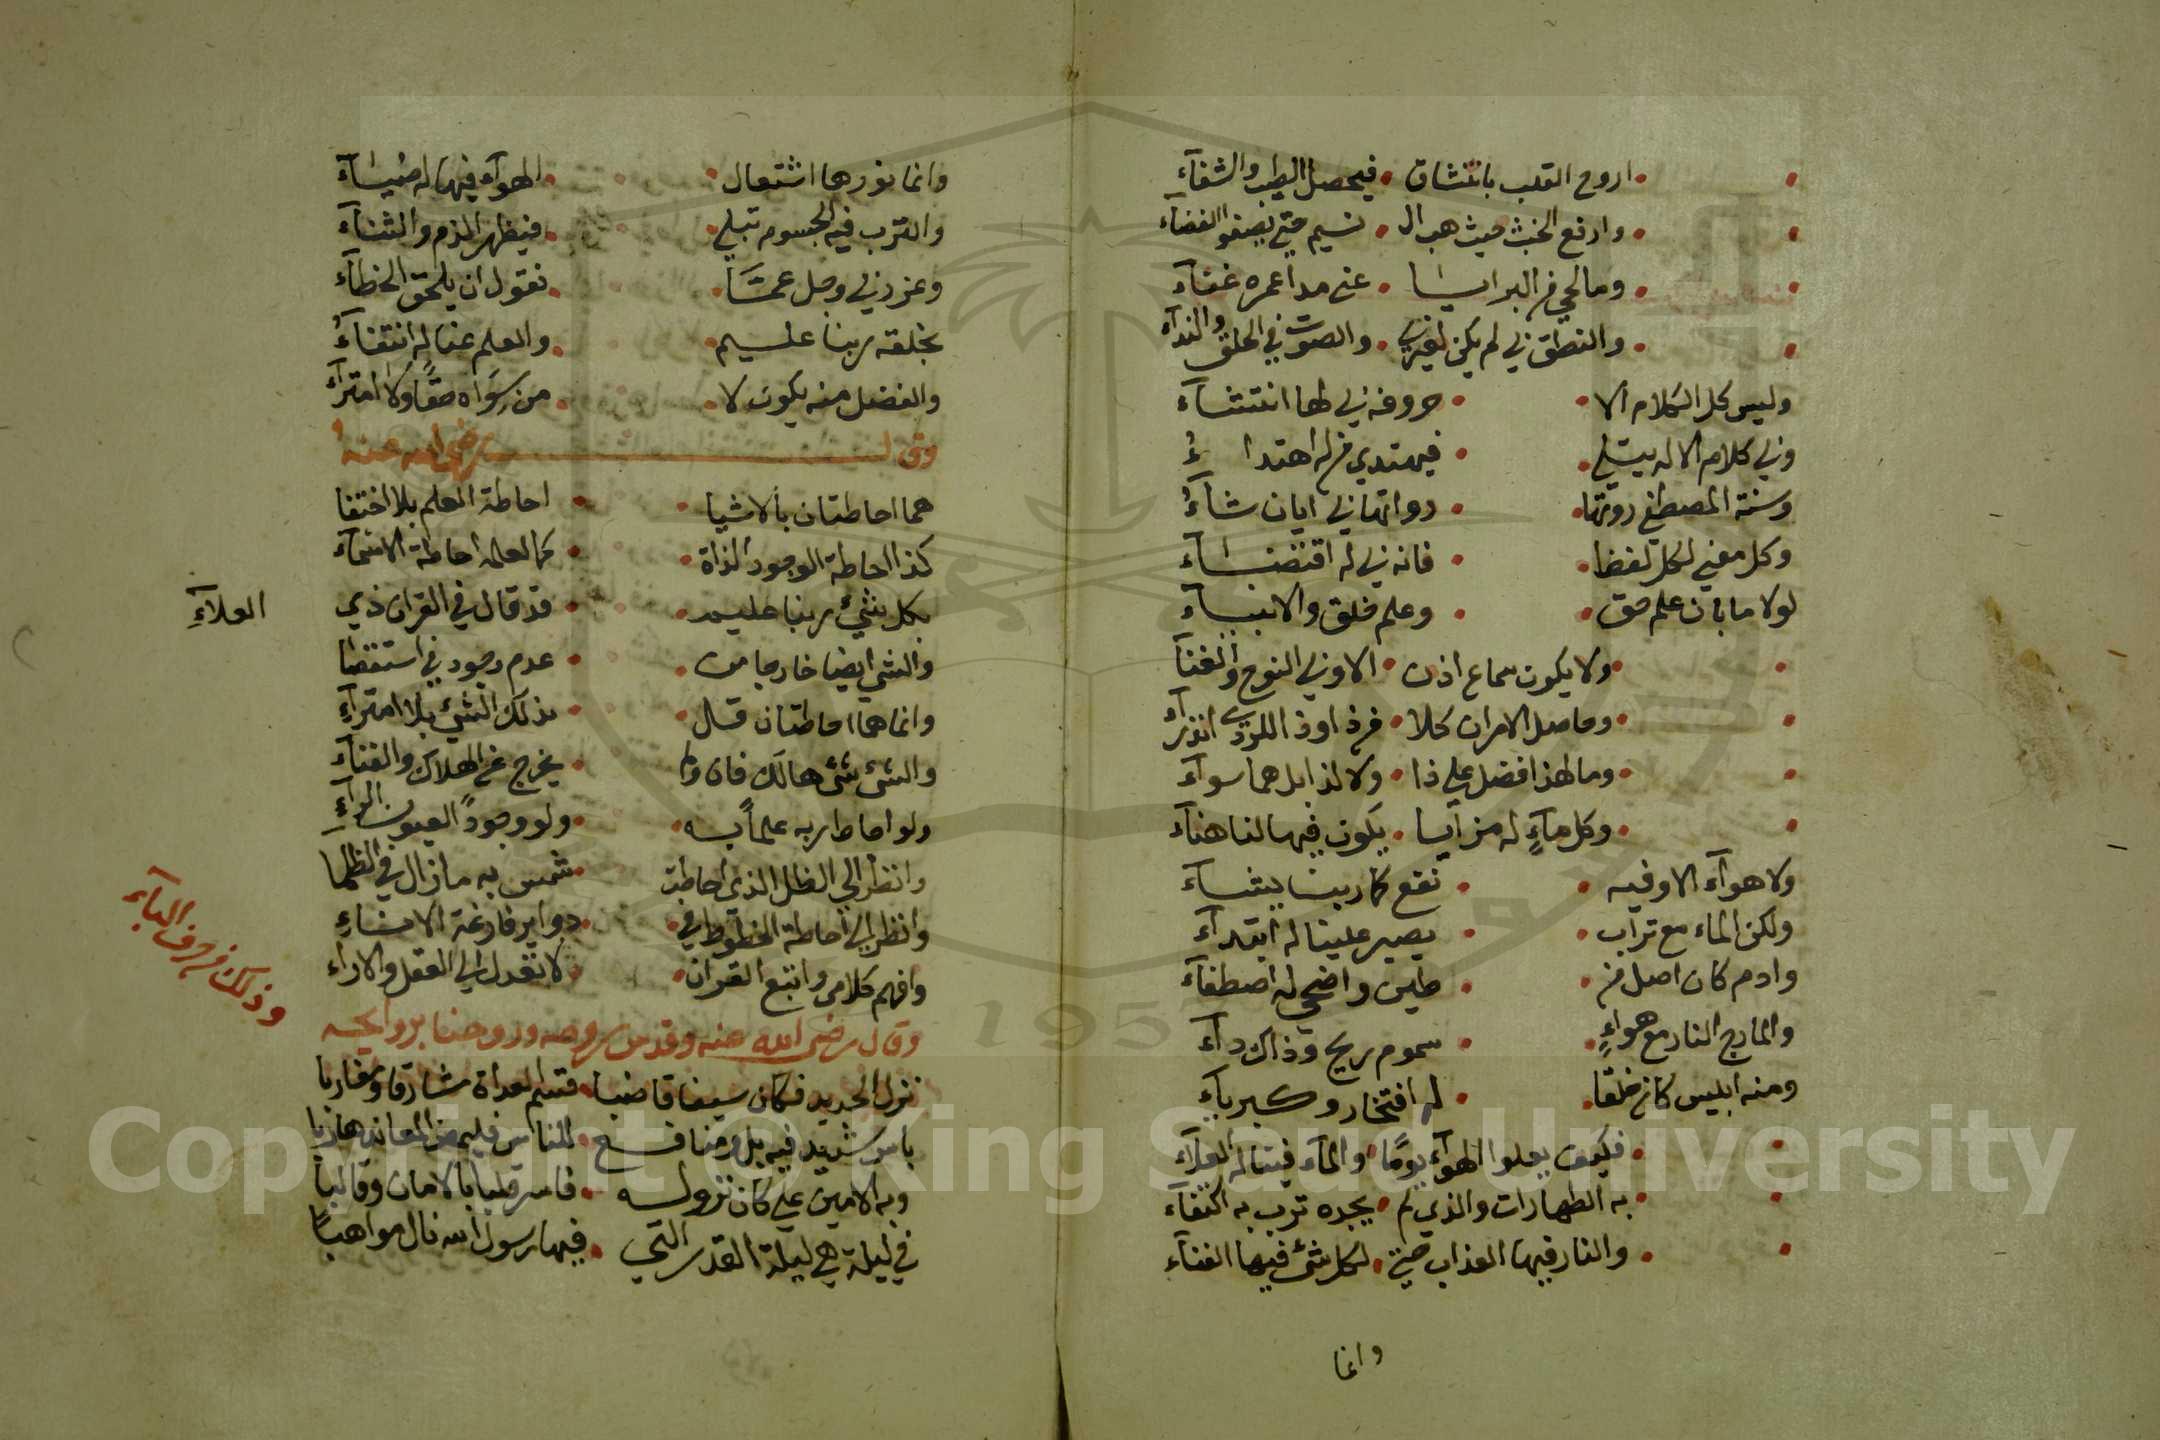 اروح القلب بانتشاق • فيحصل الطيب والشفآء
وارفع الخبث حيث هب ال • نسيم حتى يصفو الفضآء
ومالحي من البرايا • عنه مدا عمره غنآء
والنطق لي لم يكن لغيري • والصوت في الحلق والندآء
وليس كل الكلام الا • حروفه لي لها انتشآء
وفي كلام الاله يتلى • فيهتدي من له اهتداءُ
وسنة المصطفى روتها • رواتها في ايان شآءُ
وكل معنى لكل لفظ • فانه لي له اقتضآء
لولا ما بان علم حق • وعلم خلق والانبيآء
ولا يكون سماع اذن • الا وفي النوح والغنآء
وحاصل الامران كلا • من ذا وذا اللزي انزرآء
وما لهذا فضل على ذا • ولا لذا بل هما سوآء
وكل مآءٍ له مزايا • يكون فيها لنا هنآء
ولا هوآء الا وفيه • نفع كما ربنا يشآء
ولكن المآء مع تراب • يصير طينا له ابتدآء
وادم كان اصل من • طين واضحى له اصطفآء
والمارج النار مع هوآءٍ • سموم ريح وذاك دآء
ومنه ابليس كان خلقا • له افتخار وكبريآء
فكيف يعلو الهوآء يومًا • والمآء فيتا له العلآء
به الطهارات والذي لم • يجده ترب به اكتفآء
والنار فيها العذاب حتى • لكل شئ فيها الفنآء
وانما
وانما نورها اشتعال • الهوآء فيها له ضيآء
والترب فيه الجسوم تبلى • فيظهر الذم والثنآء
وعز ربي وجل عما • نقول ان يلحق الخطآء
بخلقه ربنا عليم • والعلم عنا له انتفآءُ
والفضل منه يكون لا • من سِوَاه حقًا ولا امترآء
وقال رضي الله عنه
هما احاطتان بالاشيا • احاطة العلم بلا اختفا
كذا احاطة الوجود الذاة • كما لعلمه احاطة الاسمآء
بكل شئ ربنا عليم • قد قال في القران ذي العلآءِ
والشي ايضا خارجا من • عدم وجود في استقضا
وانما هما احاطتان قل • بذلك الشئ بلا امترآءِ
والشئ شئ هالك فان ولم • يخرج عن الهلاك والفنآء
ولو احاط ربه علماً به • ولو وجودً العيون الرآءِ
وانظر الى الظل الذي احاطت • شمس به ما زال في الظلما
وانظر الى احاطة الخطوط في • دواير فارغة الاحشاءِ
وافهم كلامي واتبع القران • لا تعدل الى العقل والاراء
وذلك من حرف البآء
وقال رضي الله عنه وقدس روحه وروحنا بروايحه
نزل الحديد فكان سيفا قاضبا • قسم العداة مشارقا ومغاربا
باس شديد فيه بل ومنافع • للناس فليمض المعاند هاربا
وبه الامين على كان نزوله • فاسر قلبا بالامان وقالبا
في ليلة هي ليلة القدر التي • فيها رسول الله نال مواهبًا
Copyright © King Saud University
1957